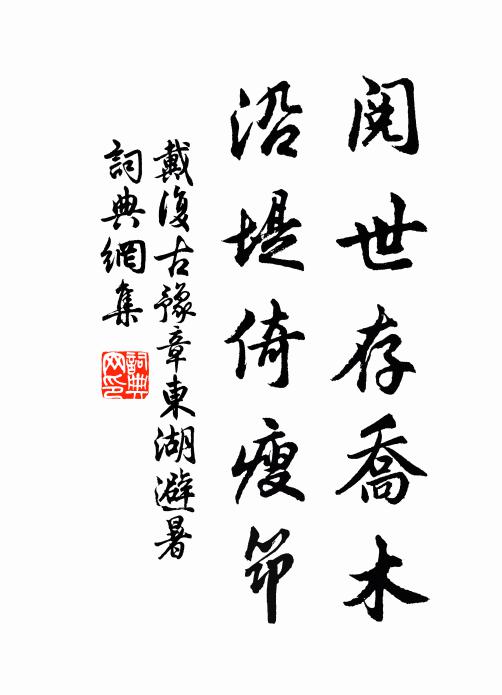 閱世存喬木
沿堤倚瘦笻
戴復古豫章東湖避暑
詞典網集
詞典網印